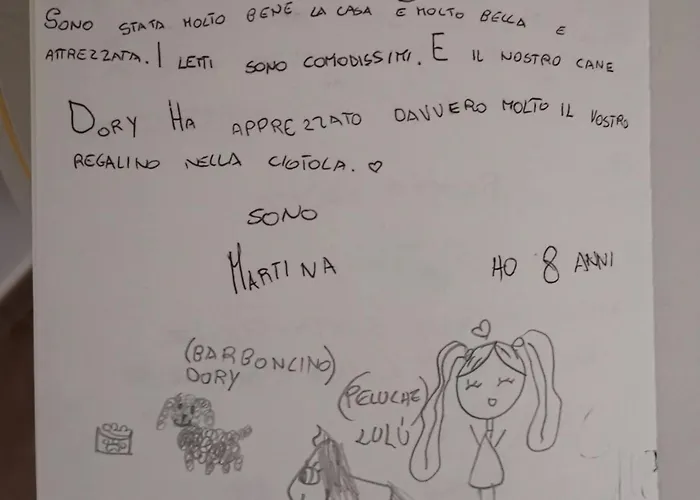 SONO STATA MOLTO BENE LA CASA E MOLTO BELLA E
ATTREZZATA. I LETTI SONO COMODISSIMI. E IL NOSTRO CANE
DORY HA APPREZZATO DAVVERO MOLTO IL VOSTRO
REGALINO NELLA CIOTOLA. ♡
SONO
MARTINA HO 8 ANNI
(BARBONCINO)
DORY
(PELUCHE)
LULÚ